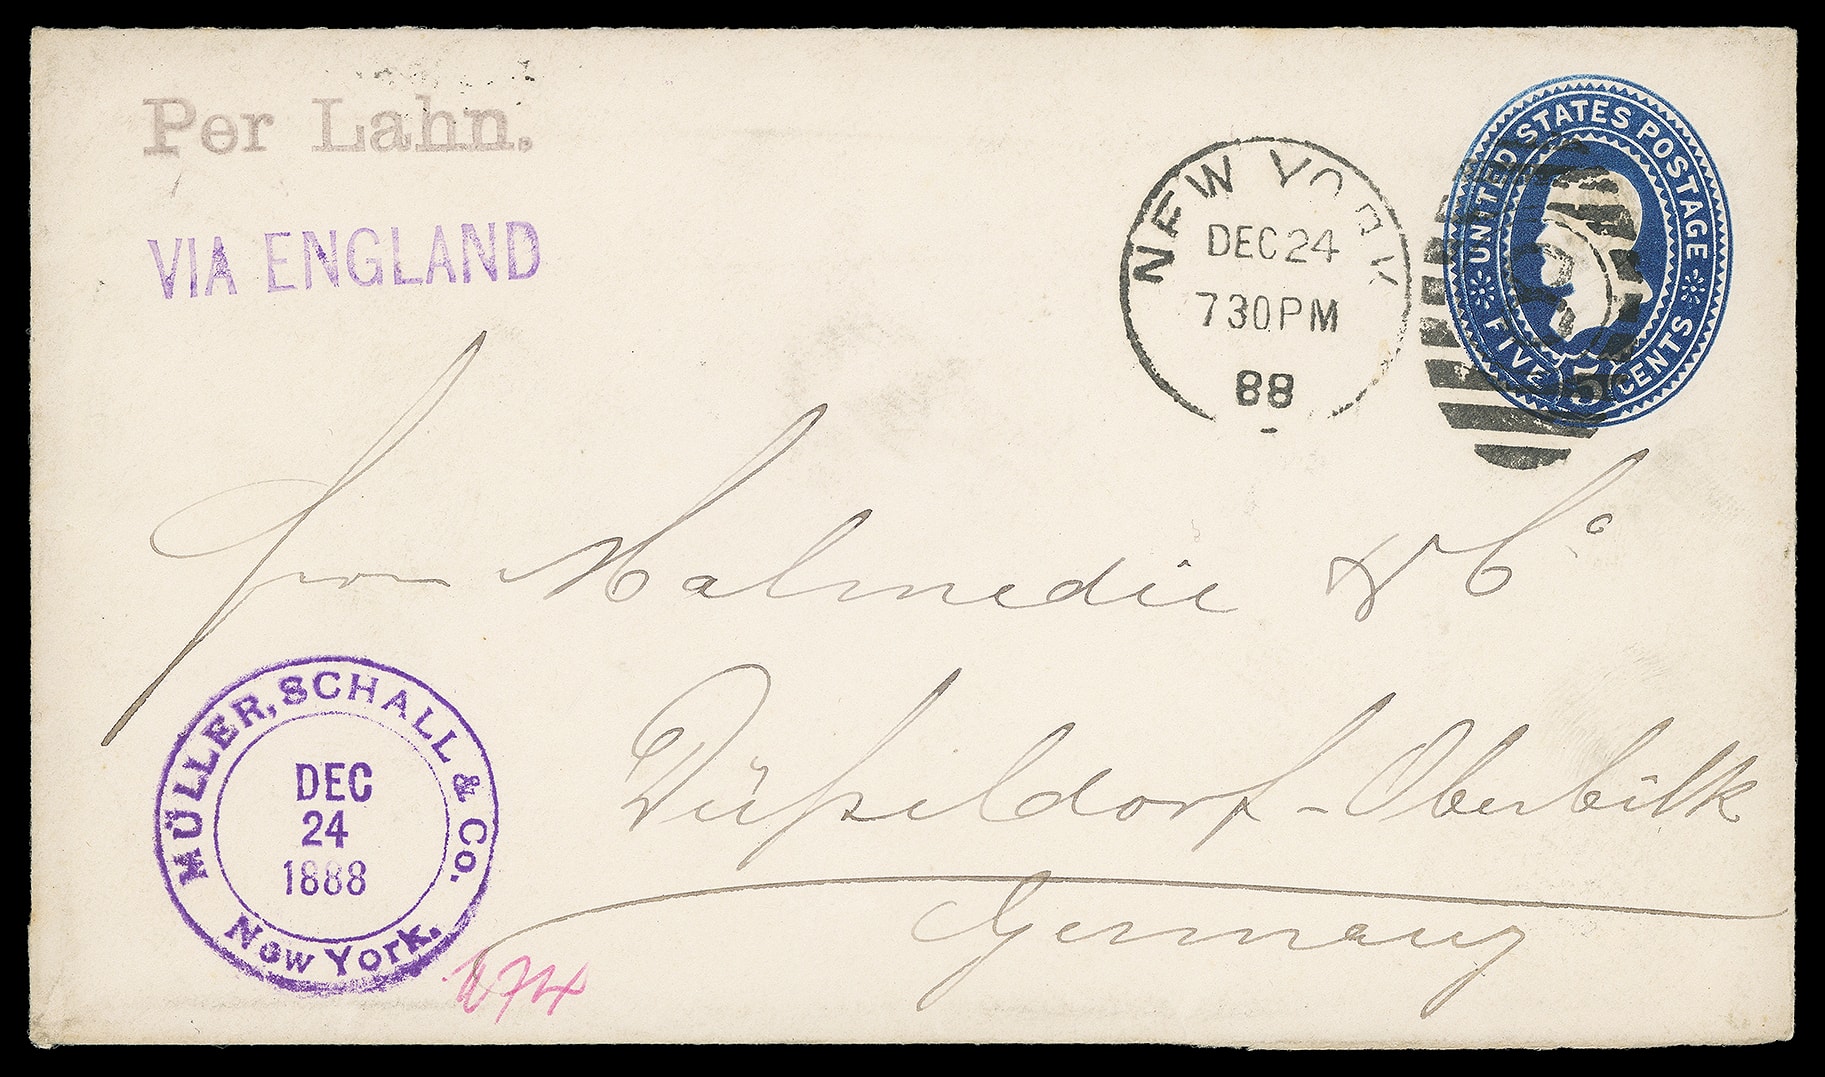 Per Lahn.
VIA ENGLAND
NEW YORK
DEC 24
730PM
88
UNITED STATES POSTAGE
FIVE 5 CENTS
Malmedie & Co
Düßeldorf-Oberbilk
Germany
MÜLLER, SCHALL & Co.
DEC
24
1888
New York.